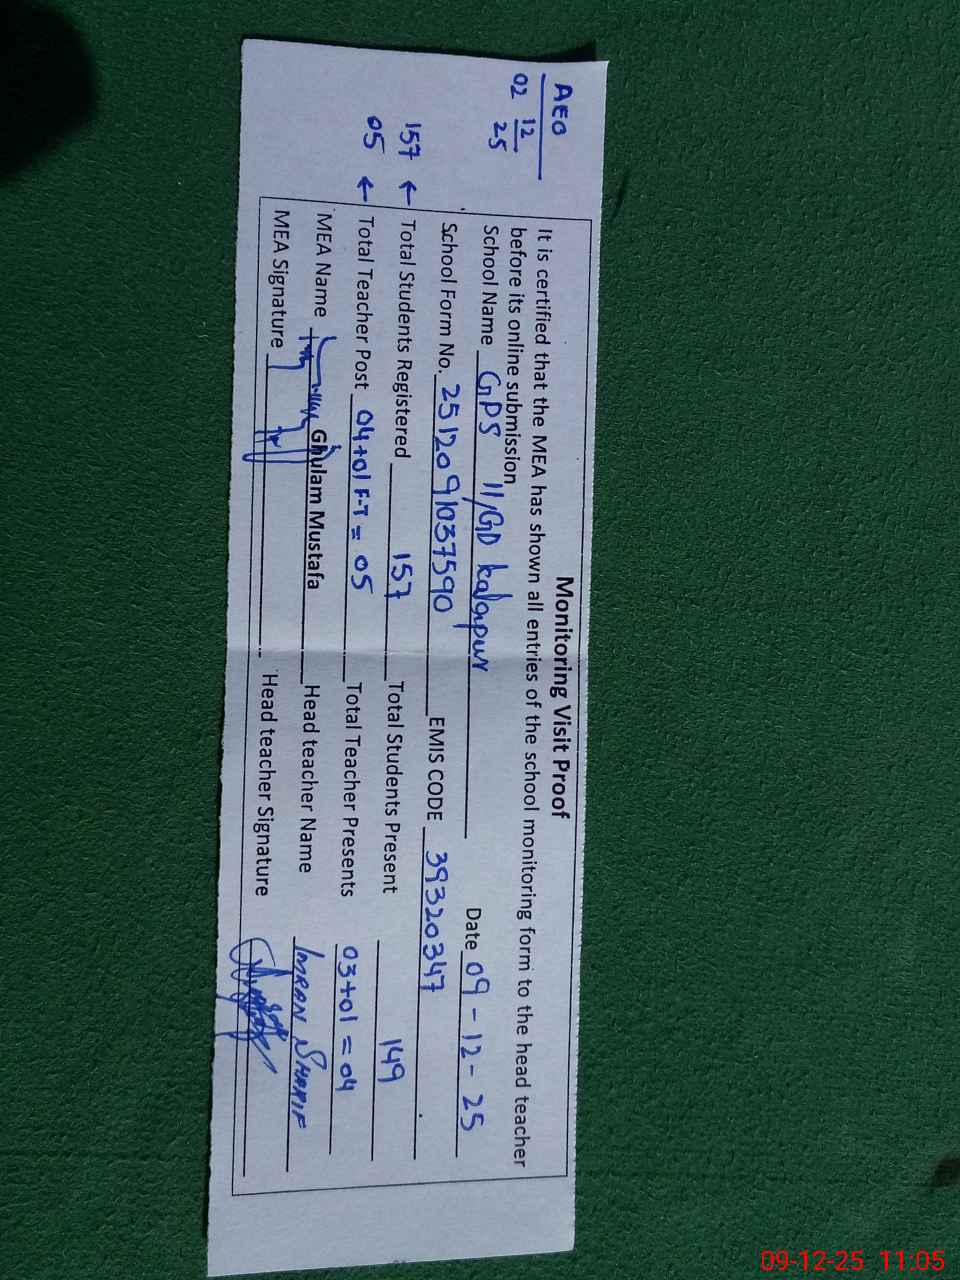 AEO
02 12
25
Monitoring Visit Proof
It is certified that the MEA has shown all entries of the school monitoring form to the head teacher
before its online submission
School Name GPS 11/GD kalapur Date 09-12-25
School Form No. 2512091037590 EMIS CODE 39320347
157 ← Total Students Registered 157 Total Students Present 149
05 ← Total Teacher Post 04+01 F-T = 05 Total Teacher Presents 03+01 = 04
MEA Name Ghulam Mustafa Head teacher Name IMRAN SHARIF
MEA Signature Head teacher Signature
09-12-25 11:05